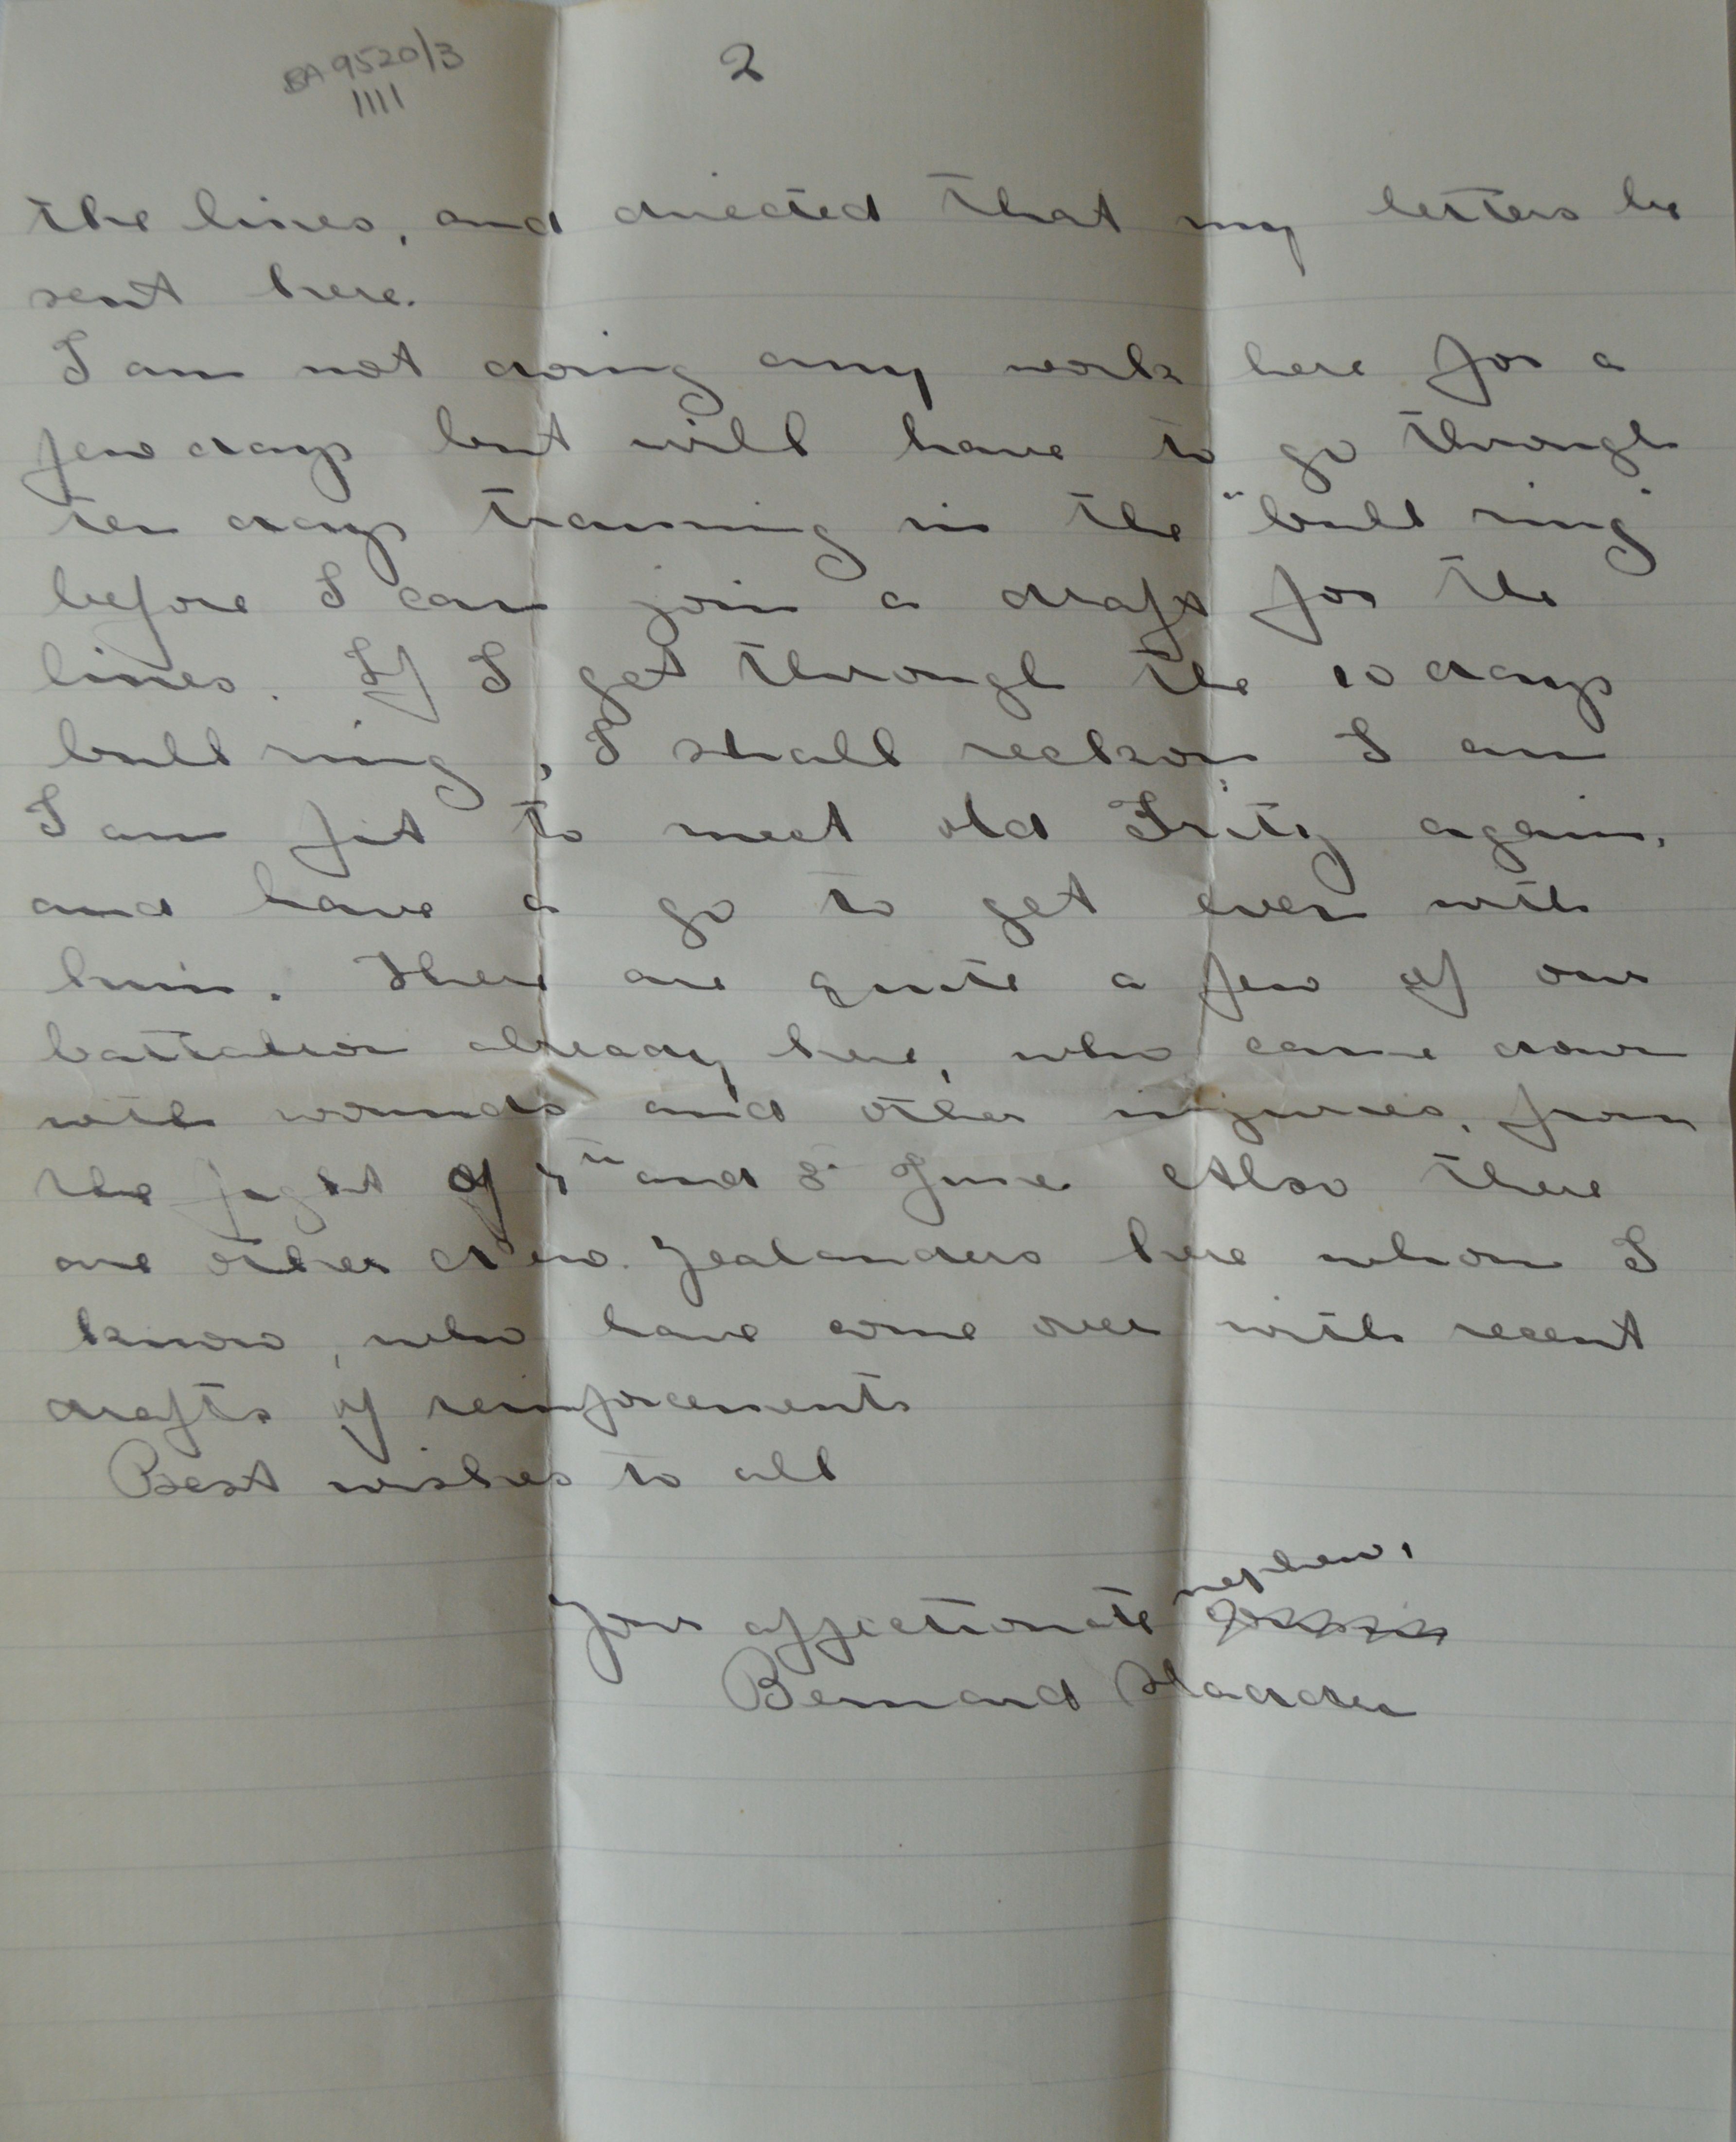 BA 9520/3
1111
2
the lines, and directed that my letters be
sent here.
I am not doing any work here for a
few days but will have to go through
ten days training in the "bull ring"
before I can join a draft for the
lines. If I get through the 10 days
bull ring, I shall reckon I am
I am fit to meet old Fritz again,
and have a go to get even with
him. There are quite a few of our
battalion already here, who came down
with wounds and other injuries, from
the fight of 7th and 8th June Also there
are other New Zealanders here whom I
know, who have come over with recent
drafts of reinforcements
Best wishes to all
nephew,
Your affectionate
Bernard